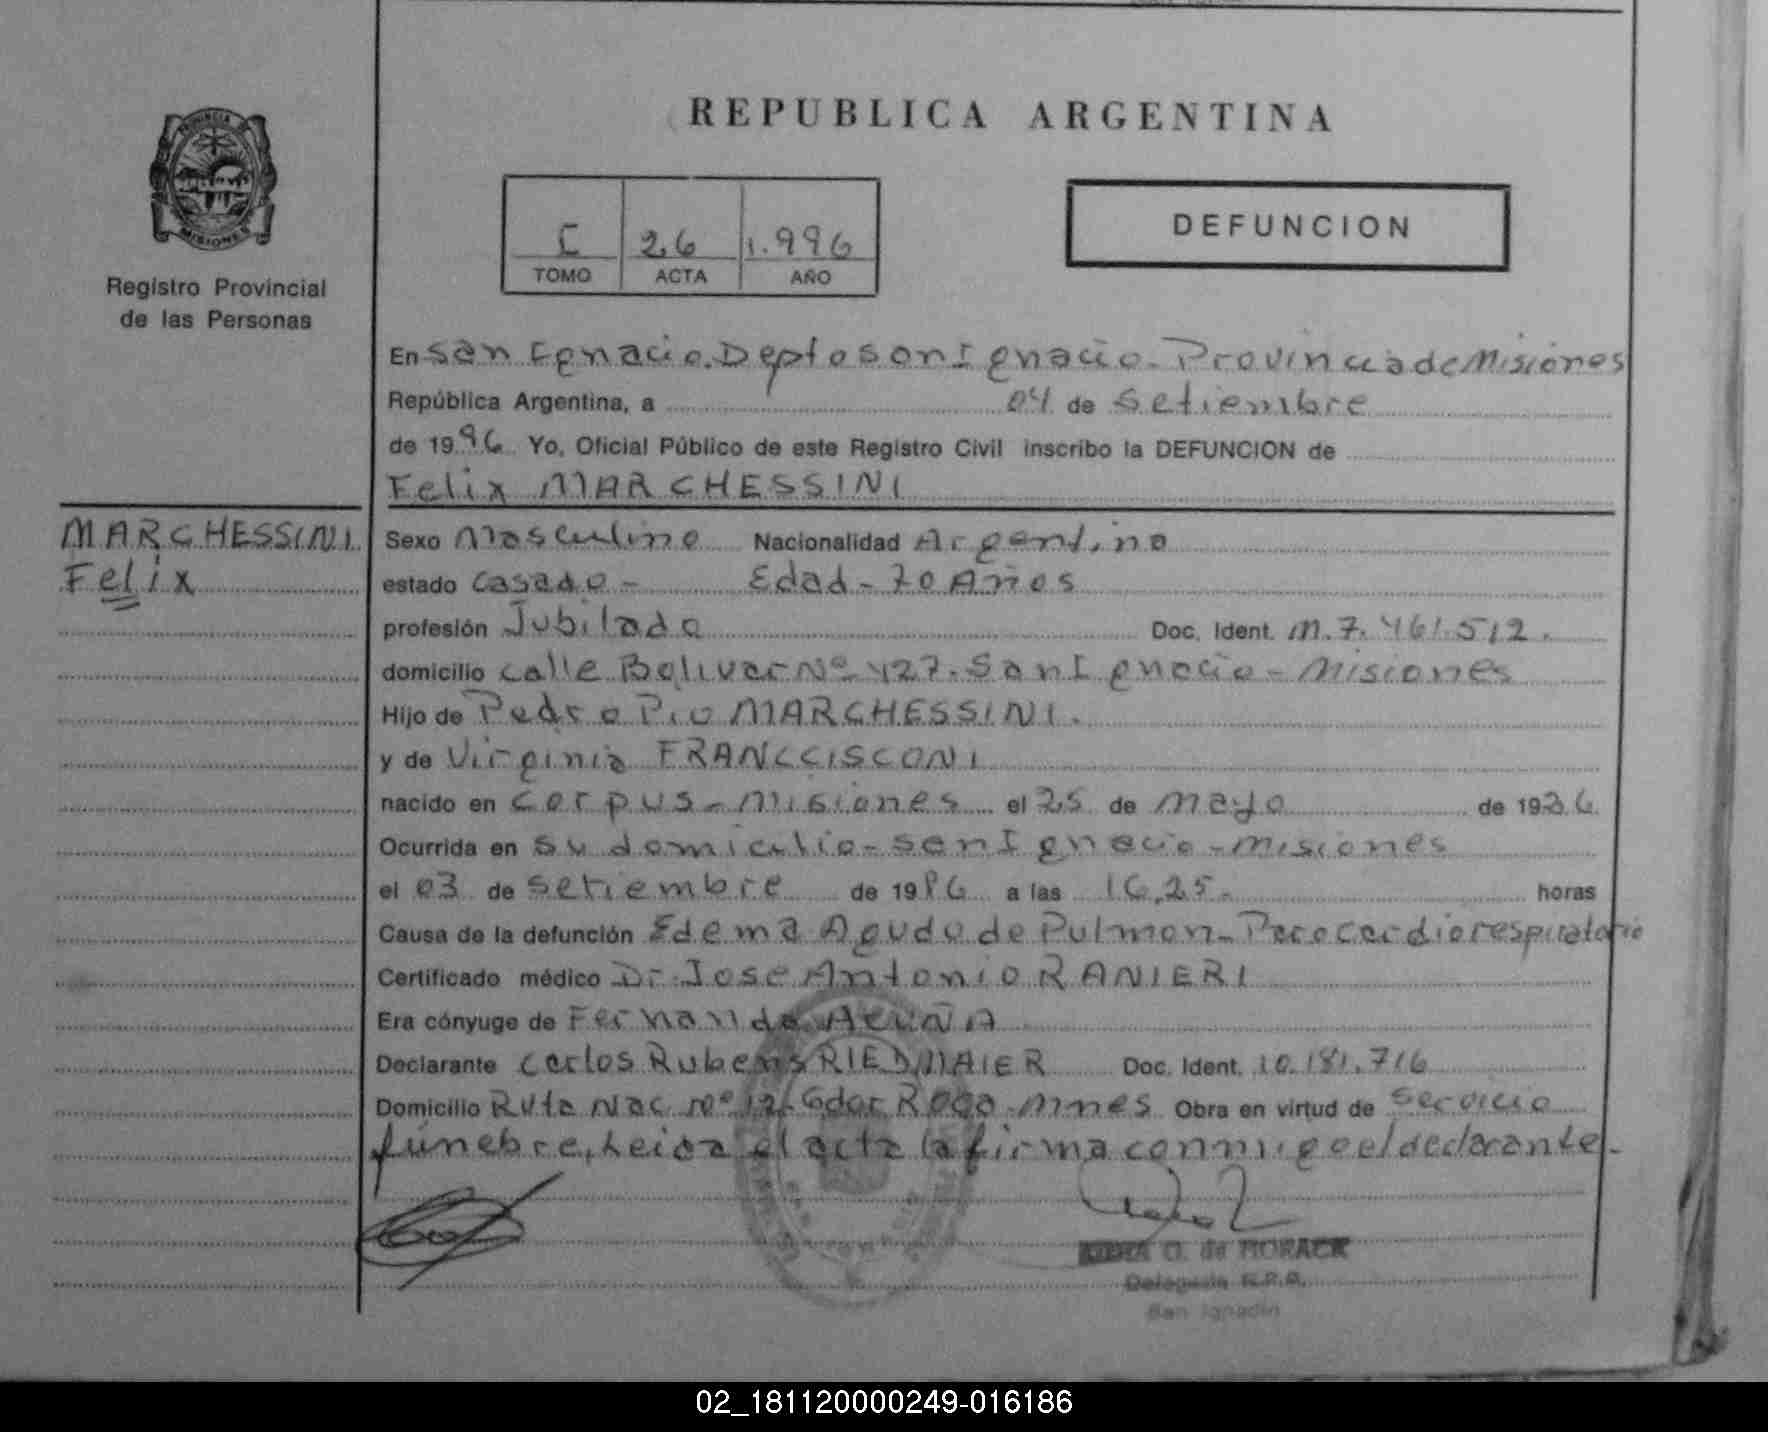 REPUBLICA ARGENTINA
PROVINCIA DE
MISIONES
Registro Provincial
de las Personas
I 26 1.996
TOMO ACTA AÑO
DEFUNCION
En San Ignacio. Depto San Ignacio - Provincia de Misiones
República Argentina, a 04 de Setiembre
de 1996 Yo, Oficial Público de este Registro Civil inscribo la DEFUNCION de
Felix MARCHESSINI
MARCHESSINI
Felix
Sexo Masculino Nacionalidad Argentino
estado casado - Edad - 70 Años
profesión Jubilado Doc. Ident. M.7.461.512.
domicilio calle Bolivar Nº 427. San Ignacio - Misiones
Hijo de Pedro Pio MARCHESSINI.
y de Virginia FRANCCISCONI
nacido en Corpus - Misiones el 25 de Mayo de 1926.
Ocurrida en su domicilio - San Ignacio - Misiones
el 03 de Setiembre de 1996 a las 16,25. horas
Causa de la defunción Edema Agudo de Pulmon - Parocardiorespiratorio
Certificado médico Dr. Jose Antonio RANIERI
Era cónyuge de Fernanda ACUÑA
Declarante Carlos Rubens RIEDMAIER Doc. Ident. 10.181.716
Domicilio Ruta Nac Nº 12 - Gdor Roca - Mnes Obra en virtud de Servicio
fúnebre, Leida el acta la firma conmigo el declarante -
O. de HORACK
Delegada R.P.P.
San Ignacio
02_181120000249-016186